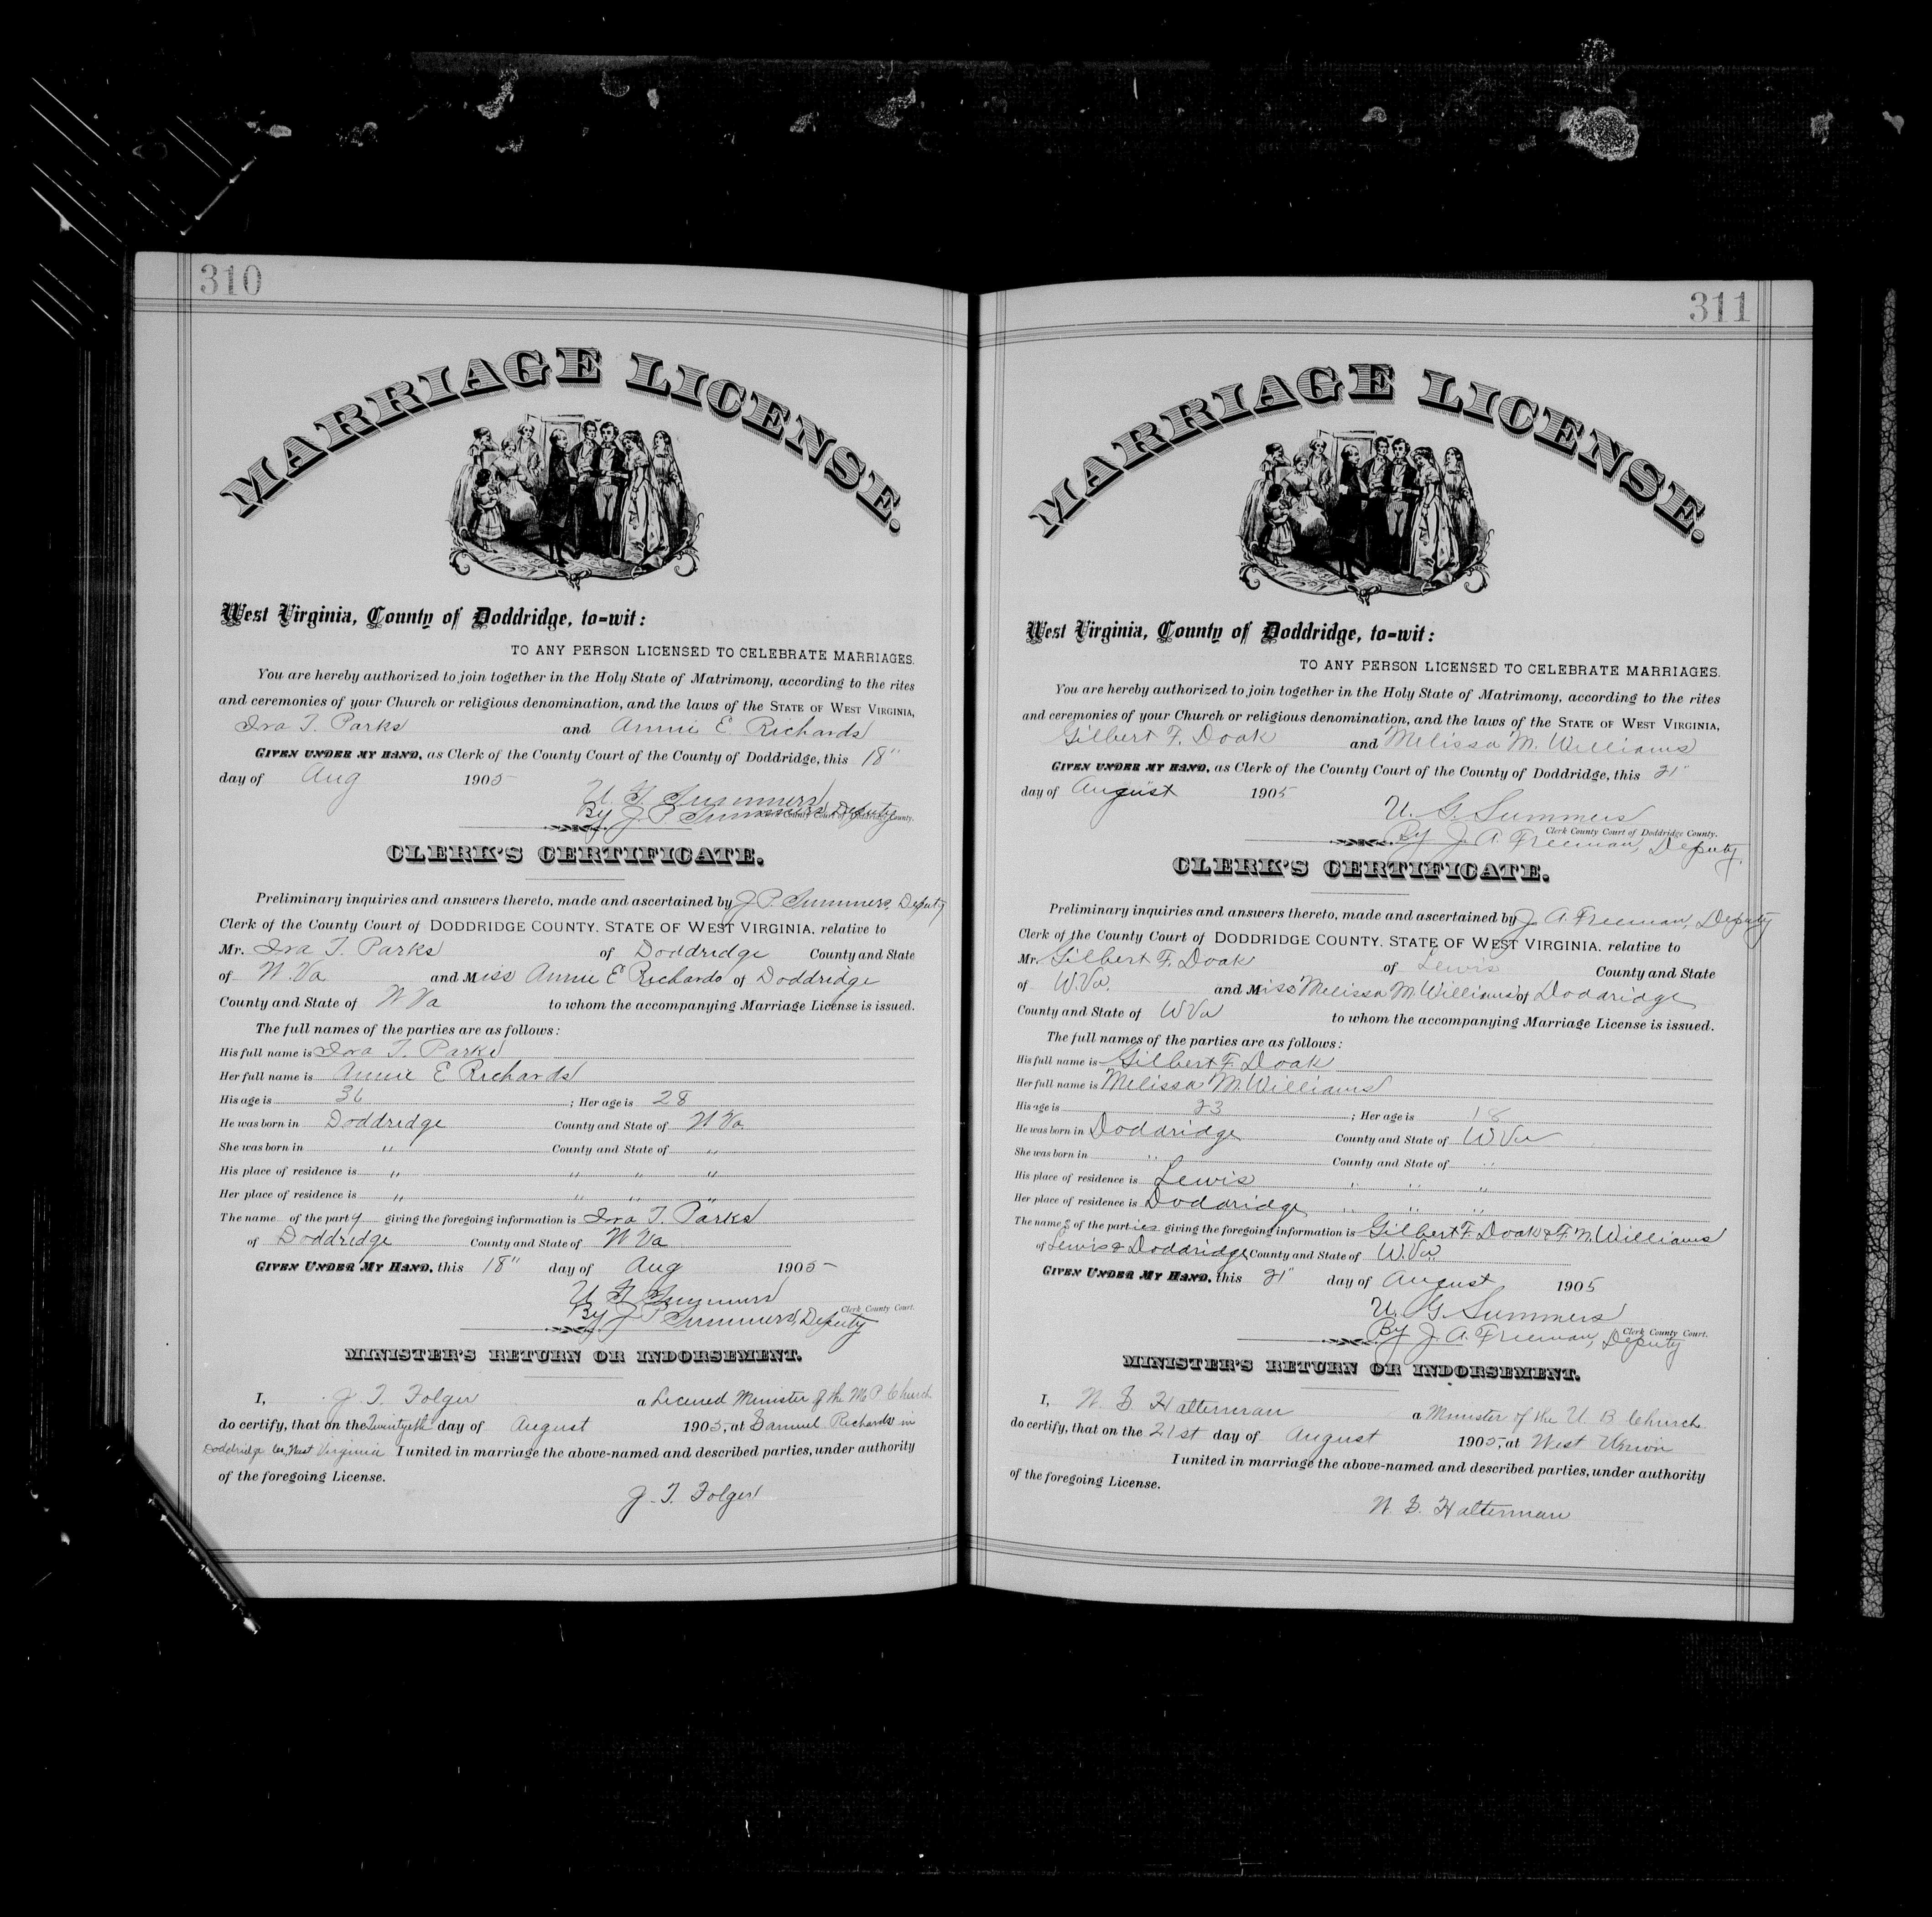 310
MARRIAGE LICENSE.
West Virginia, County of Doddridge, to-wit:
TO ANY PERSON LICENSED TO CELEBRATE MARRIAGES.
You are hereby authorized to join together in the Holy State of Matrimony, according to the rites
and ceremonies of your Church or religious denomination, and the laws of the STATE OF WEST VIRGINIA,
Ira T. Parks and Annie E. Richards
GIVEN UNDER MY HAND, as Clerk of the County Court of the County of Doddridge, this 18"
day of Aug 1905
U. G. Summers
By J P Summers Deputy
Clerk County Court of Doddridge County.
CLERK'S CERTIFICATE.
Preliminary inquiries and answers thereto, made and ascertained by J P. Summers, Deputy
Clerk of the County Court of DODDRIDGE COUNTY, STATE OF WEST VIRGINIA, relative to
Mr. Ira T. Parks of Doddridge County and State
of W. Va and Miss Annie E Richards of Doddridge
County and State of W Va to whom the accompanying Marriage License is issued.
The full names of the parties are as follows:
His full name is Ira T. Parks
Her full name is Annie E Richards
His age is 36 ; Her age is 28
He was born in Doddridge County and State of W Va
She was born in " County and State of "
His place of residence is " " " "
Her place of residence is " " " "
The name of the party giving the foregoing information is Ira T. Parks
of Doddridge County and State of W Va
GIVEN UNDER MY HAND, this 18" day of Aug 1905
U G Summers
Clerk County Court.
By J P Summers, Deputy
MINISTER'S RETURN OR INDORSEMENT.
I, J. T. Folger a Licened Minister of the M. P. Church
do certify, that on the Twintyeth day of August 1905, at Samuel Richards in
Doddridge Co, West Virginia I united in marriage the above-named and described parties, under authority
of the foregoing License.
J. T. Folger
311
MARRIAGE LICENSE.
West Virginia, County of Doddridge, to-wit:
TO ANY PERSON LICENSED TO CELEBRATE MARRIAGES.
You are hereby authorized to join together in the Holy State of Matrimony, according to the rites
and ceremonies of your Church or religious denomination, and the laws of the STATE OF WEST VIRGINIA,
Gilbert F. Doak and Melissa M. Williams
GIVEN UNDER MY HAND, as Clerk of the County Court of the County of Doddridge, this 21"
day of August 1905
U. G. Summers
Clerk County Court of Doddridge County.
By J. A. Freeman, Deputy.
CLERK'S CERTIFICATE.
Preliminary inquiries and answers thereto, made and ascertained by J. A. Freeman, Deputy
Clerk of the County Court of DODDRIDGE COUNTY, STATE OF WEST VIRGINIA, relative to
Mr. Gilbert F. Doak of Lewis County and State
of W. Va. and Miss Melissa M. Williams of Doddridge
County and State of W Va to whom the accompanying Marriage License is issued.
The full names of the parties are as follows:
His full name is Gilbert F. Doak
Her full name is Melissa M. Williams
His age is 23 ; Her age is 18
He was born in Doddridge County and State of W Va
She was born in " County and State of "
His place of residence is Lewis " " "
Her place of residence is Doddridge " " "
The names of the parties giving the foregoing information is Gilbert F. Doak & F. N. Williams
of Lewis & Doddridge County and State of W. Va.
GIVEN UNDER MY HAND, this 21" day of August 1905
U. G. Summers
Clerk County Court.
By J. A. Freeman, Deputy
MINISTER'S RETURN OR INDORSEMENT.
I, W. S. Halterman a Minister of the U. B. Church
do certify, that on the 21st day of August 1905, at West Union
I united in marriage the above-named and described parties, under authority
of the foregoing License.
W. S. Halterman